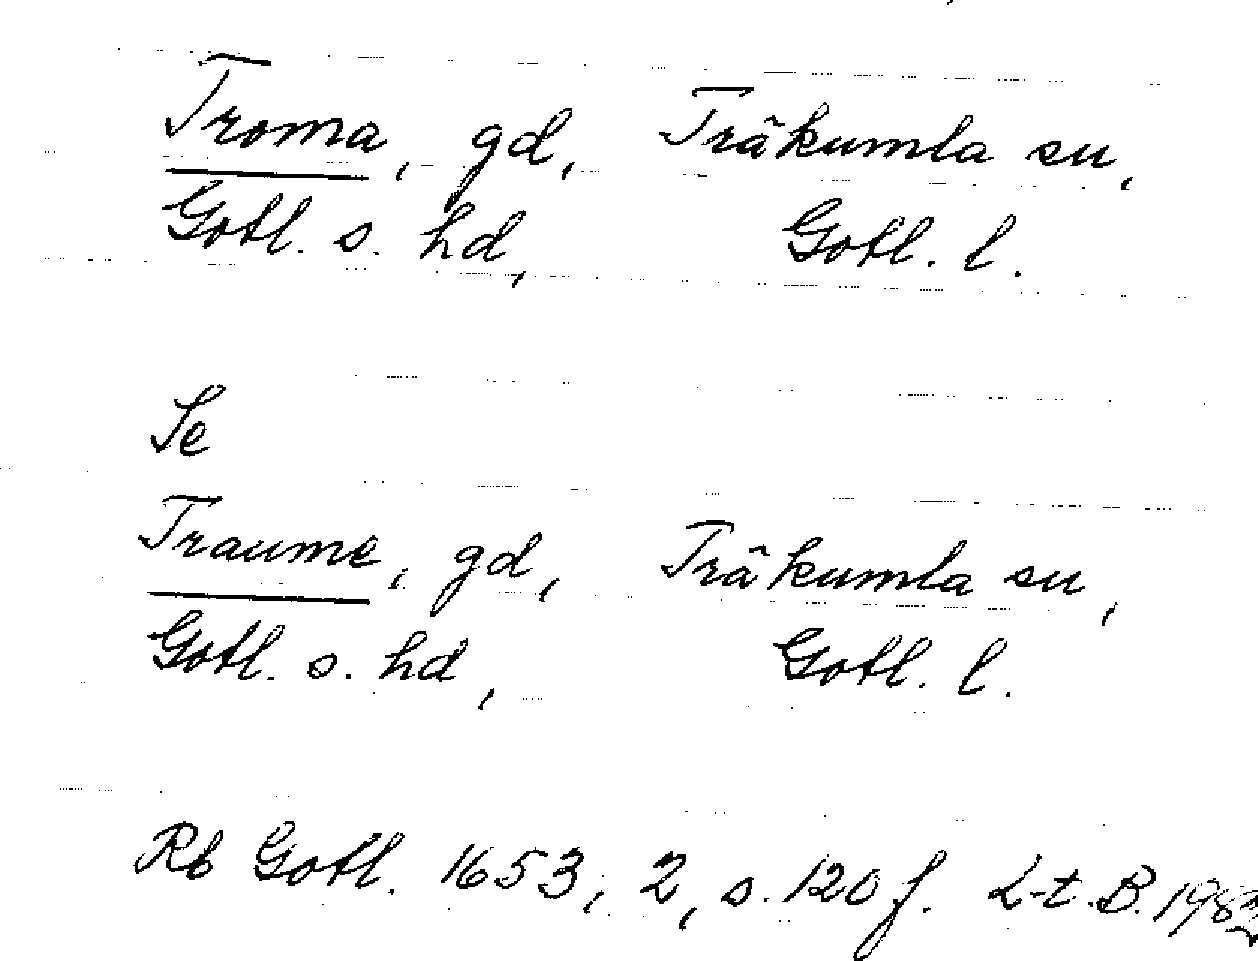 Troma, gd, Träkumla sn,
Gotl. s. hd, Gotl. l.
Se
Traume, gd, Träkumla sn,
Gotl. s. hd, Gotl. l.
Rb Gotl. 1653, 2, s. 120 f. L-t. B.